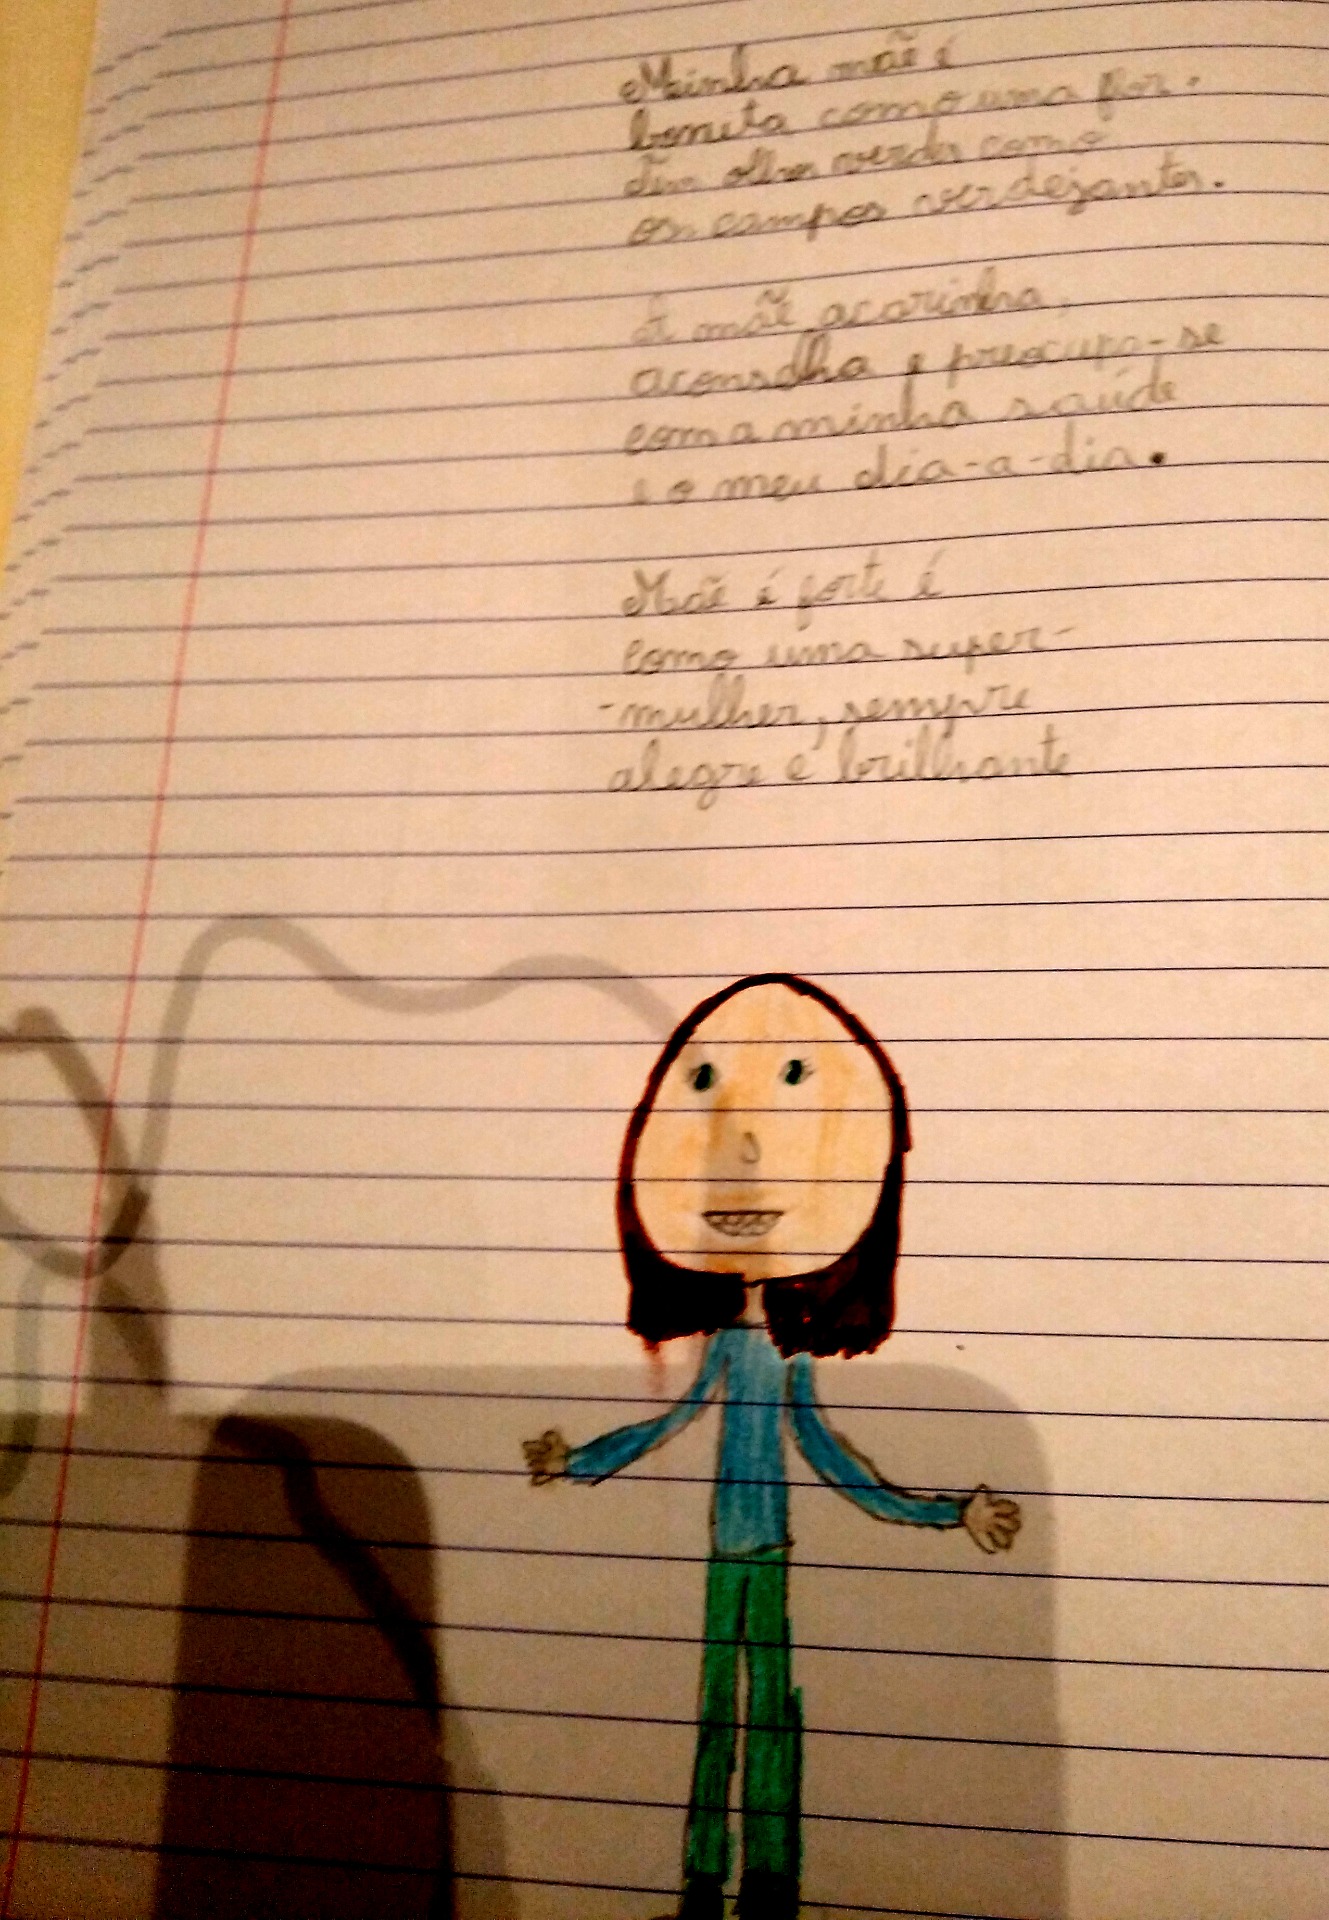 Minha mãe é
bonita como uma flor.
Tem olhos verdes como
os campos verdejantes.
A mãe acarinha,
aconselha e preocupa-se
com a minha saúde
e o meu dia-a-dia.
Mãe é forte é
como uma super-
-mulher, sempre
alegre e brilhante